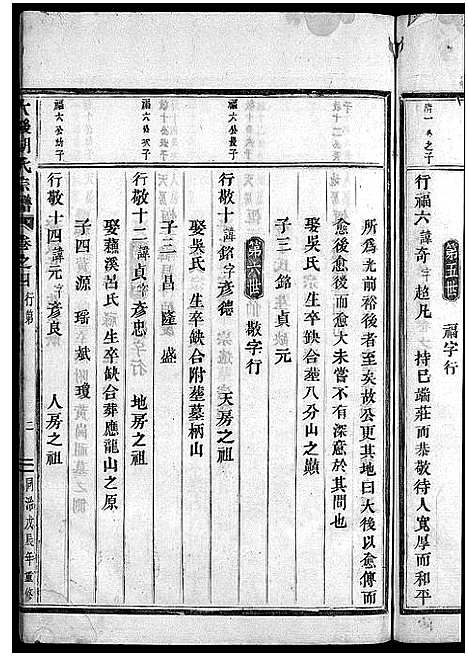 第五世　福字行
清一公之子
行福六諱奇字超凡　持已端莊而恭敬待人寬厚而和平
所為光前裕後者至矣故公更其地曰大後以愈傳而
愈後愈後而愈大未嘗不有深意於其間也
娶吳氏　生卒缺合塟八分山之巔
子三　銘　貞　元
第六世　敬字行
福六公長子
行敬十諱銘字彥德　天房之祖
娶吳氏　生卒缺合附塟墓柄山
子三　昌　隆　盛
福六公次子
行敬十二諱貞字彥忠　地房之祖
娶蘓溪呂氏　生卒缺合葬應龍山之原
子四　源　瑤　斌　瓊
福六公幼子
行敬十四諱元字彥良　人房之祖
大後胡氏宗譜　卷之四　行第　三　同治戊辰年重修